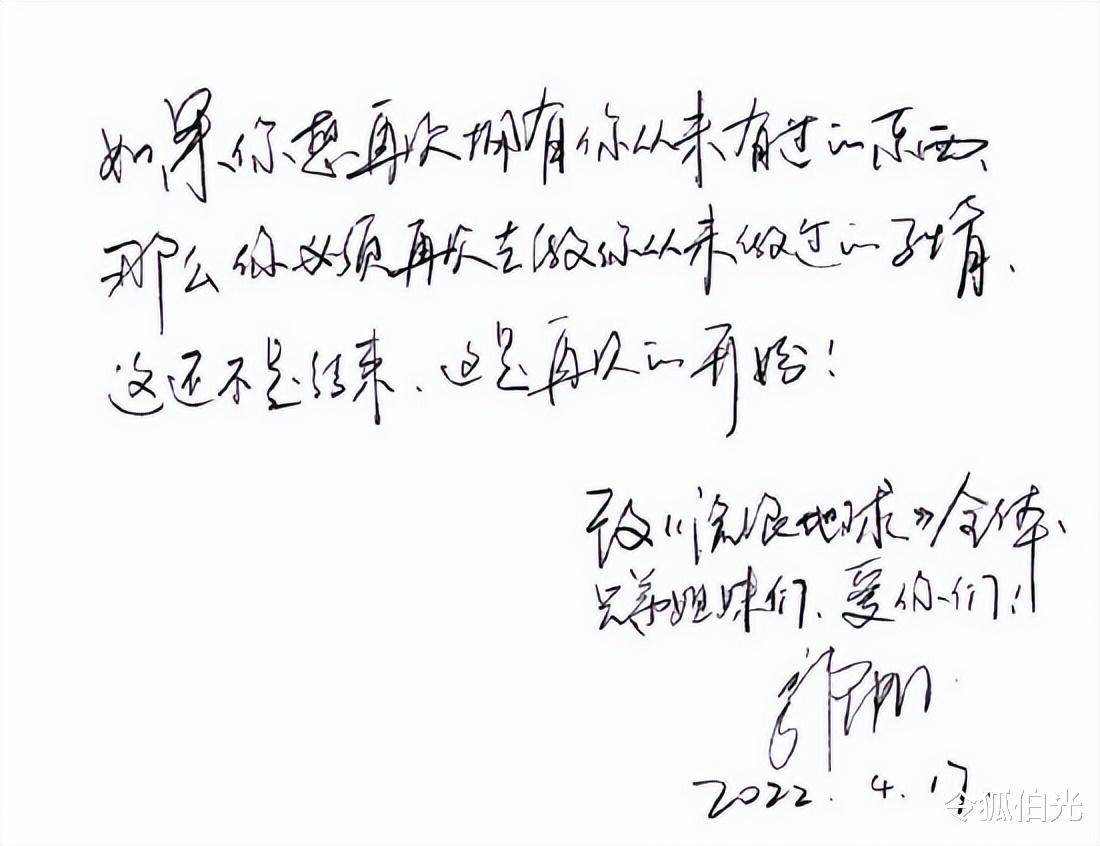 如果你想再次拥有你从来有过的东西、
那么你必须再次去做你从来做过的事情、
这还不是结束、这是再次的开始！
致《流浪地球》全体、
兄弟姐妹们、爱你们！
2022.4.17.
令狐伯光